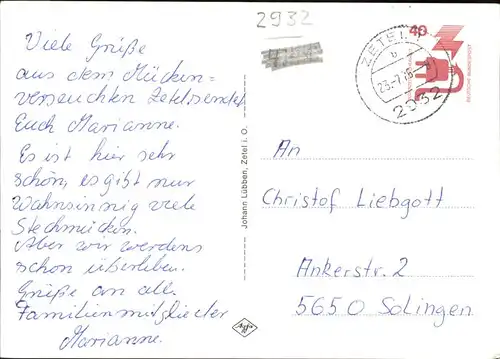 2932
Viele Grüße
aus dem Mücken=
verseuchten Zetel sendet
Euch Marianne.
Es ist hier sehr
schön, es gibt nur
Wahnsinnig viele
Stechmücken.
Aber wir werdens
schon überleben.
Grüße an all.
Familienmitglieder
Marianne.
Johann Lübben, Zetel i. O.
Agfa
ZETEL 1
b
23.-7.76
2932
40
DEUTSCHE BUNDESPOST
An
Christof Liebgott
Ankerstr. 2
5650 Solingen